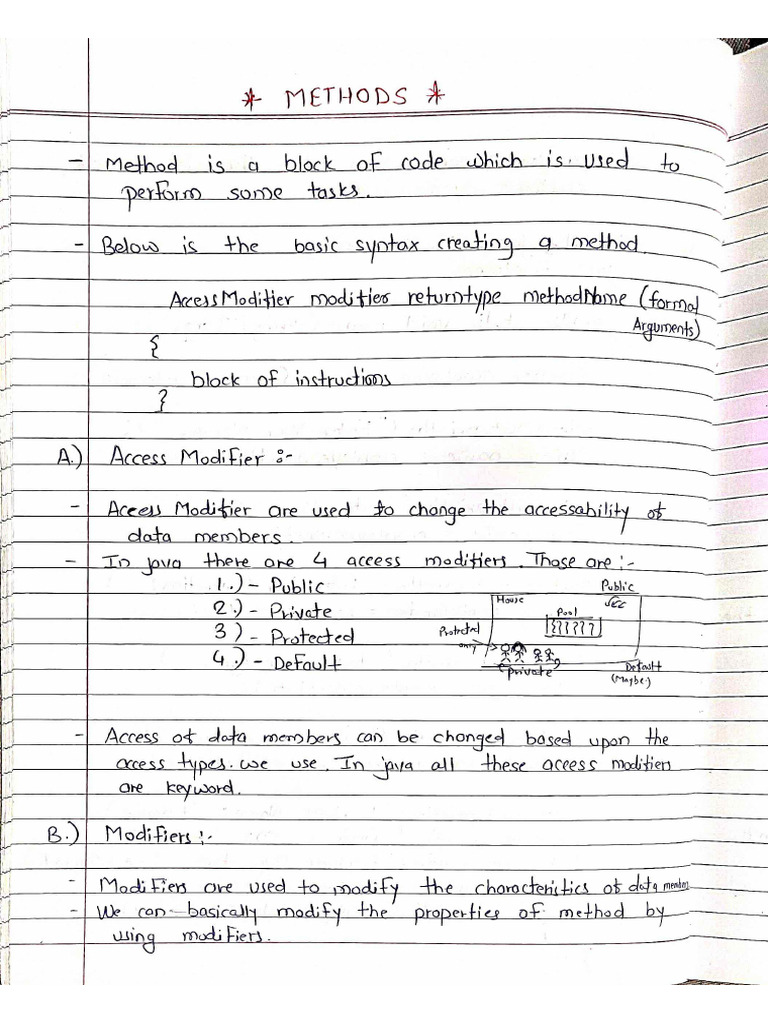 * METHODS *
- Method is a block of code which is used to
perform some tasks.
- Below is the basic syntax creating a method.
AccessModifier modifier returntype methodName (formal
Arguments)
{
block of instructions
}
A.) Access Modifier :-
- Access Modifier are used to change the accessability of
data members.
- In java there are 4 access modifiers. Those are :-
1.) - Public
2.) - Private
3) - Protected
4.) - Default
Public
House
Pool
Protected
only
Private
Default
(Maybe)
- Access of data members can be changed based upon the
access types. we use. In java all these access modifiers
are keyword.
B.) Modifiers :-
- Modifiers are used to modify the characteristics of data members
- We can basically modify the properties of method by
using modifiers.